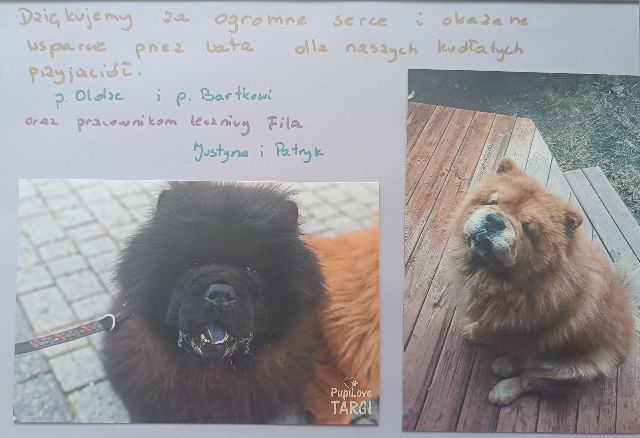 Dziękujemy za ogromne serce i okazane
wsparcie przez lata dla naszych kudłatych
przyjaciół.
p. Oldze i p. Bartkowi
oraz pracownikom lecznicy Fila
Justyna i Patryk
PupiLove
TARGI